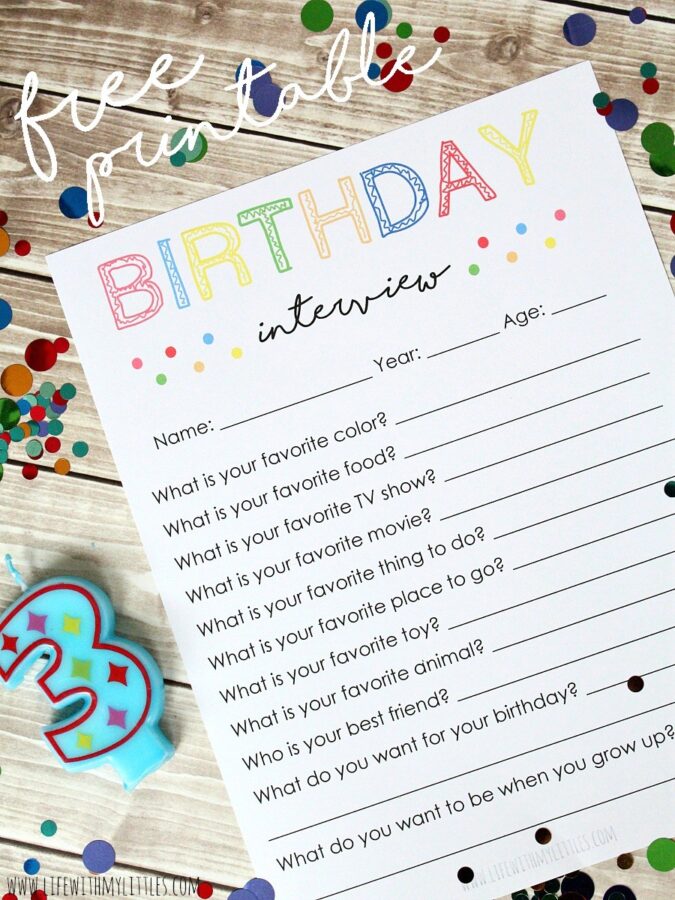 free
printable
BIRTHDAY
interview
Name: ____________ Year: ______ Age: ______
What is your favorite color? ____________
What is your favorite food? ____________
What is your favorite TV show? ____________
What is your favorite movie? ____________
What is your favorite thing to do? ____________
What is your favorite place to go? ____________
What is your favorite toy? ____________
What is your favorite animal? ____________
Who is your best friend? ____________
What do you want for your birthday? ____________
What do you want to be when you grow up?
3
WWW.LIFEWITHMYLITTLES.COM
WWW.LIFEWITHMYLITTLES.COM